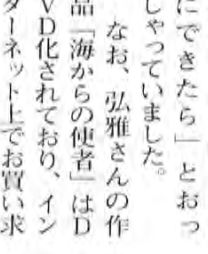 にできたら」とおっ
しゃっていました。
なお、弘雅さんの作
品「海からの使者」はD
VD化されており、イン
ターネット上でお買い求